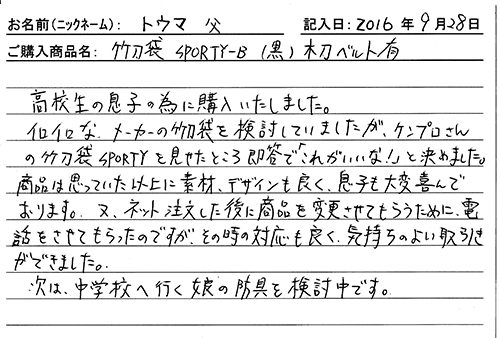 お名前(ニックネーム): トウマ 父 記入日: 2016 年 9 月 28 日
ご購入商品名: 竹刀袋 SPORTY-B (黒) 木刀ベルト有
高校生の息子の為に購入いたしました。
イロイロな、メーカーの竹刀袋を検討していましたが、ケンプロさん
の竹刀袋SPORTYを見せたところ即答で「これがいいな!」と決めました。
商品は思っていた以上に素材、デザインも良く、息子も大変喜んで
おります。又、ネット注文した後に商品を変更させてもらうために、電
話をさせてもらったのですが、その時の対応も良く、気持ちのよい取引き
ができました。
次は、中学校へ行く娘の防具を検討中です。